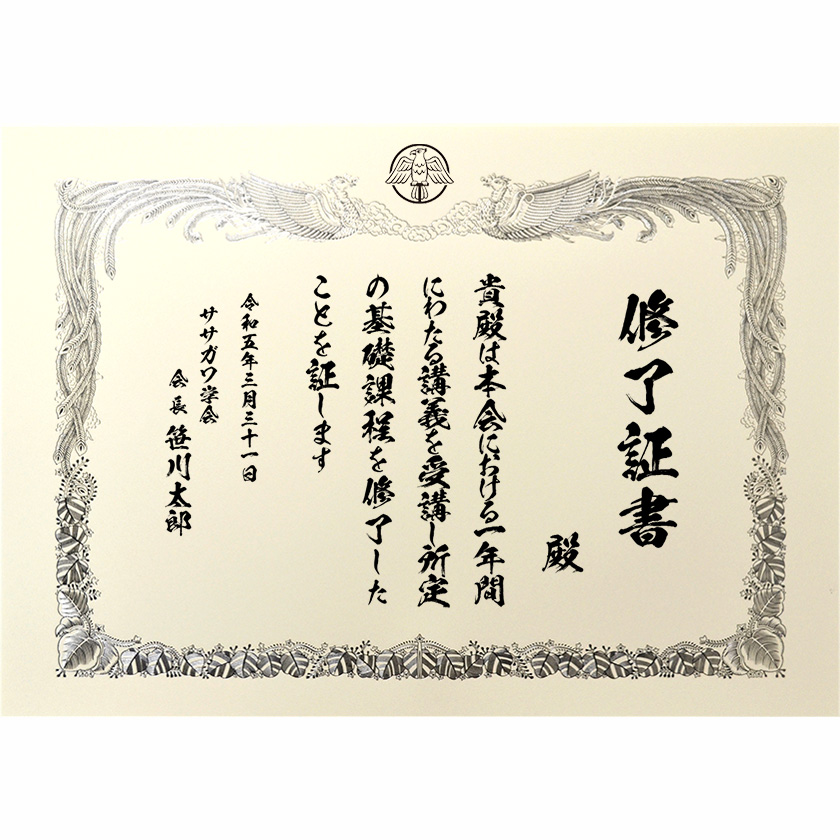 修了証書
殿
貴殿は本会における一年間
にわたる講義を受講し所定
の基礎課程を修了した
ことを証します
令和五年三月三十一日
ササガワ学会
会長 笹川太郎